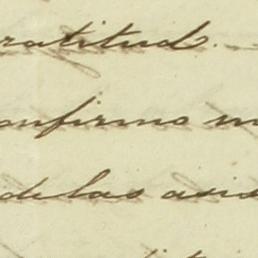 ratitud.
onfirmo m
de las asis